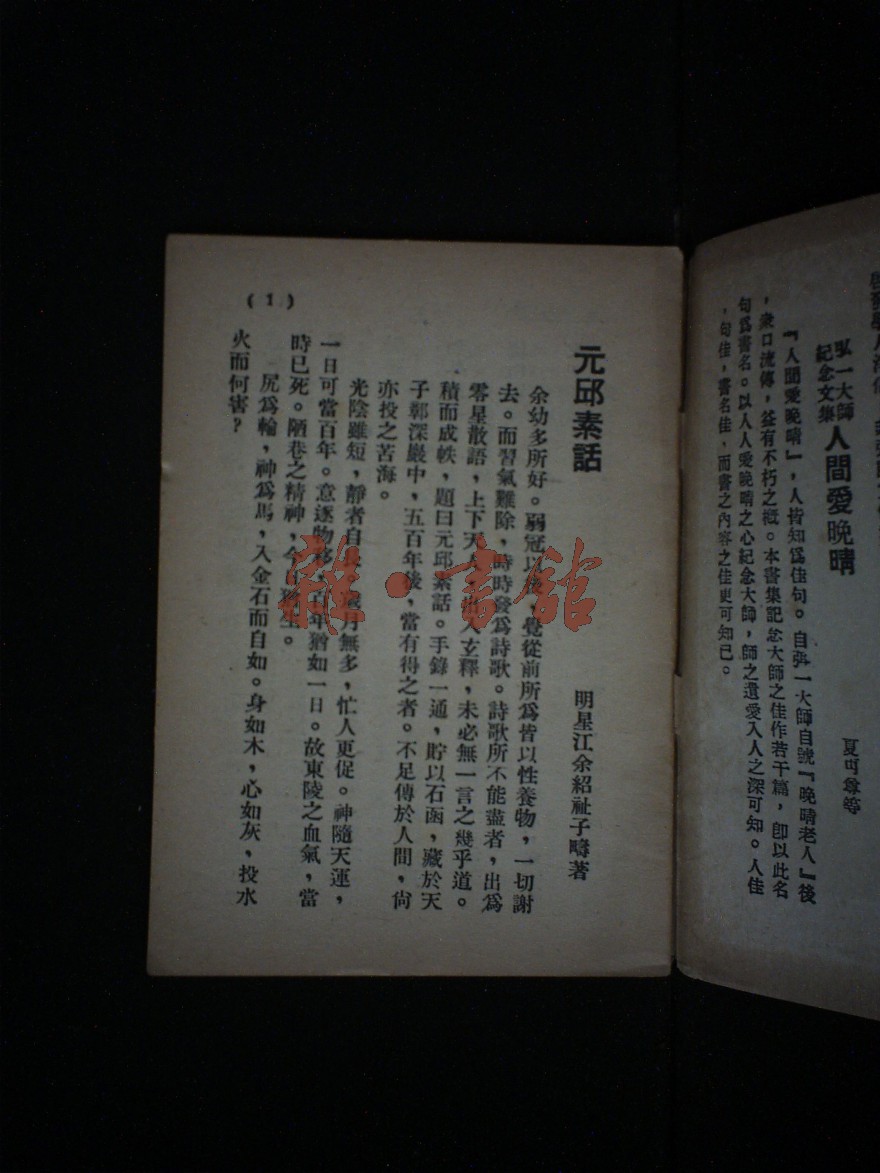 啓
弘一大師
紀念文集
人間愛晚晴
夏丏尊等
『人間愛晚晴』，人皆知爲佳句。自弘一大師自號『晚晴老人』後
，衆口流傳，益有不朽之槪。本書集記念大師之佳作若干篇，卽以此名
句爲書名。以人人愛晚晴之心紀念大師，師之遺愛入人之深可知。人佳
，句佳，書名佳，而書之內容之佳更可知已。
元邱素話
明星江余紹祉子疇著
余幼多所好。弱冠以後，覺從前所爲皆以性養物，一切謝
去。而習氣難除，時時發爲詩歌。詩歌所不能盡者，出爲
零星散語，上下天人，出入玄釋，未必無一言之幾乎道。
積而成軼，題曰元邱素話。手錄一通，貯以石函，藏於天
子鄣深巖中，五百年後，當有得之者。不足傳於人間，尙
亦投之苦海。
光陰雖短，靜者自長。歲月無多，忙人更促。神隨天運，
一日可當百年。意逐物移，百年猶如一日。故東陵之血氣，當
時已死。陋巷之精神，今日猶生。
尻爲輪，神爲馬，入金石而自如。身如木，心如灰，投水
火而何害？
(1)
雜·書館